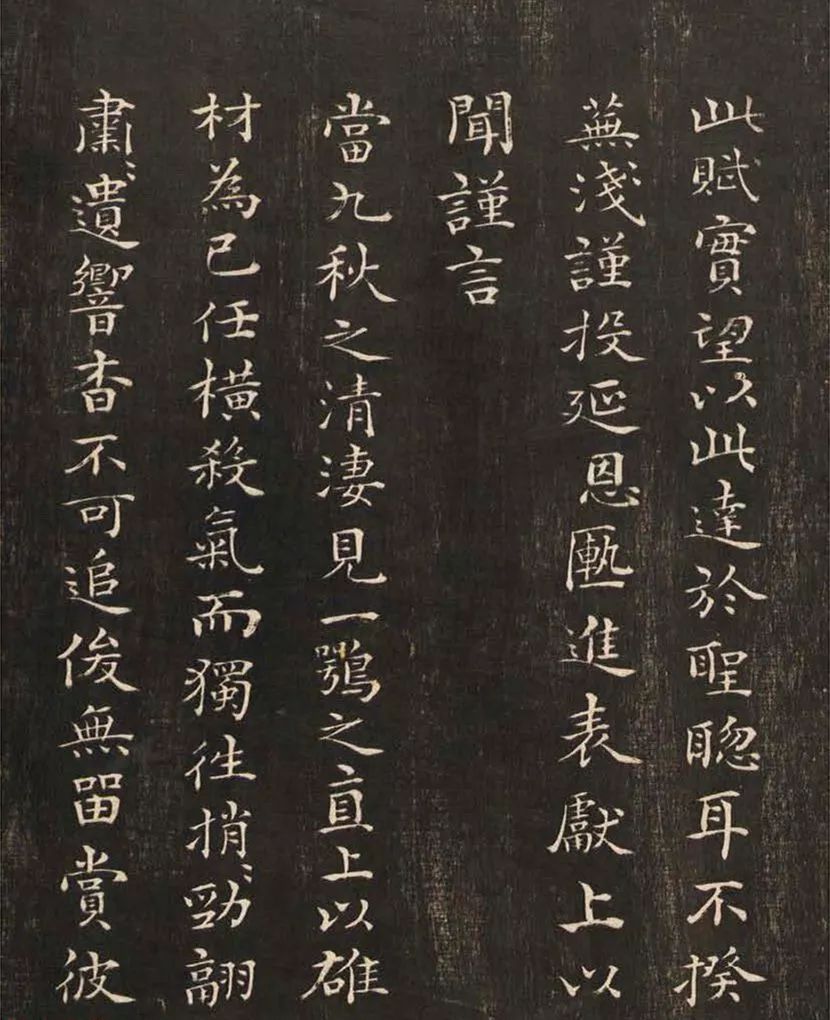 此賦實望以此達於聖聰耳不揆
蕪淺謹投延恩匭進表獻上以
聞謹言
當九秋之清淒見一鶚之直上以雄
材為己任橫殺氣而獨往捎〻勁翮
肅〻遺響杳不可追俊無留賞彼